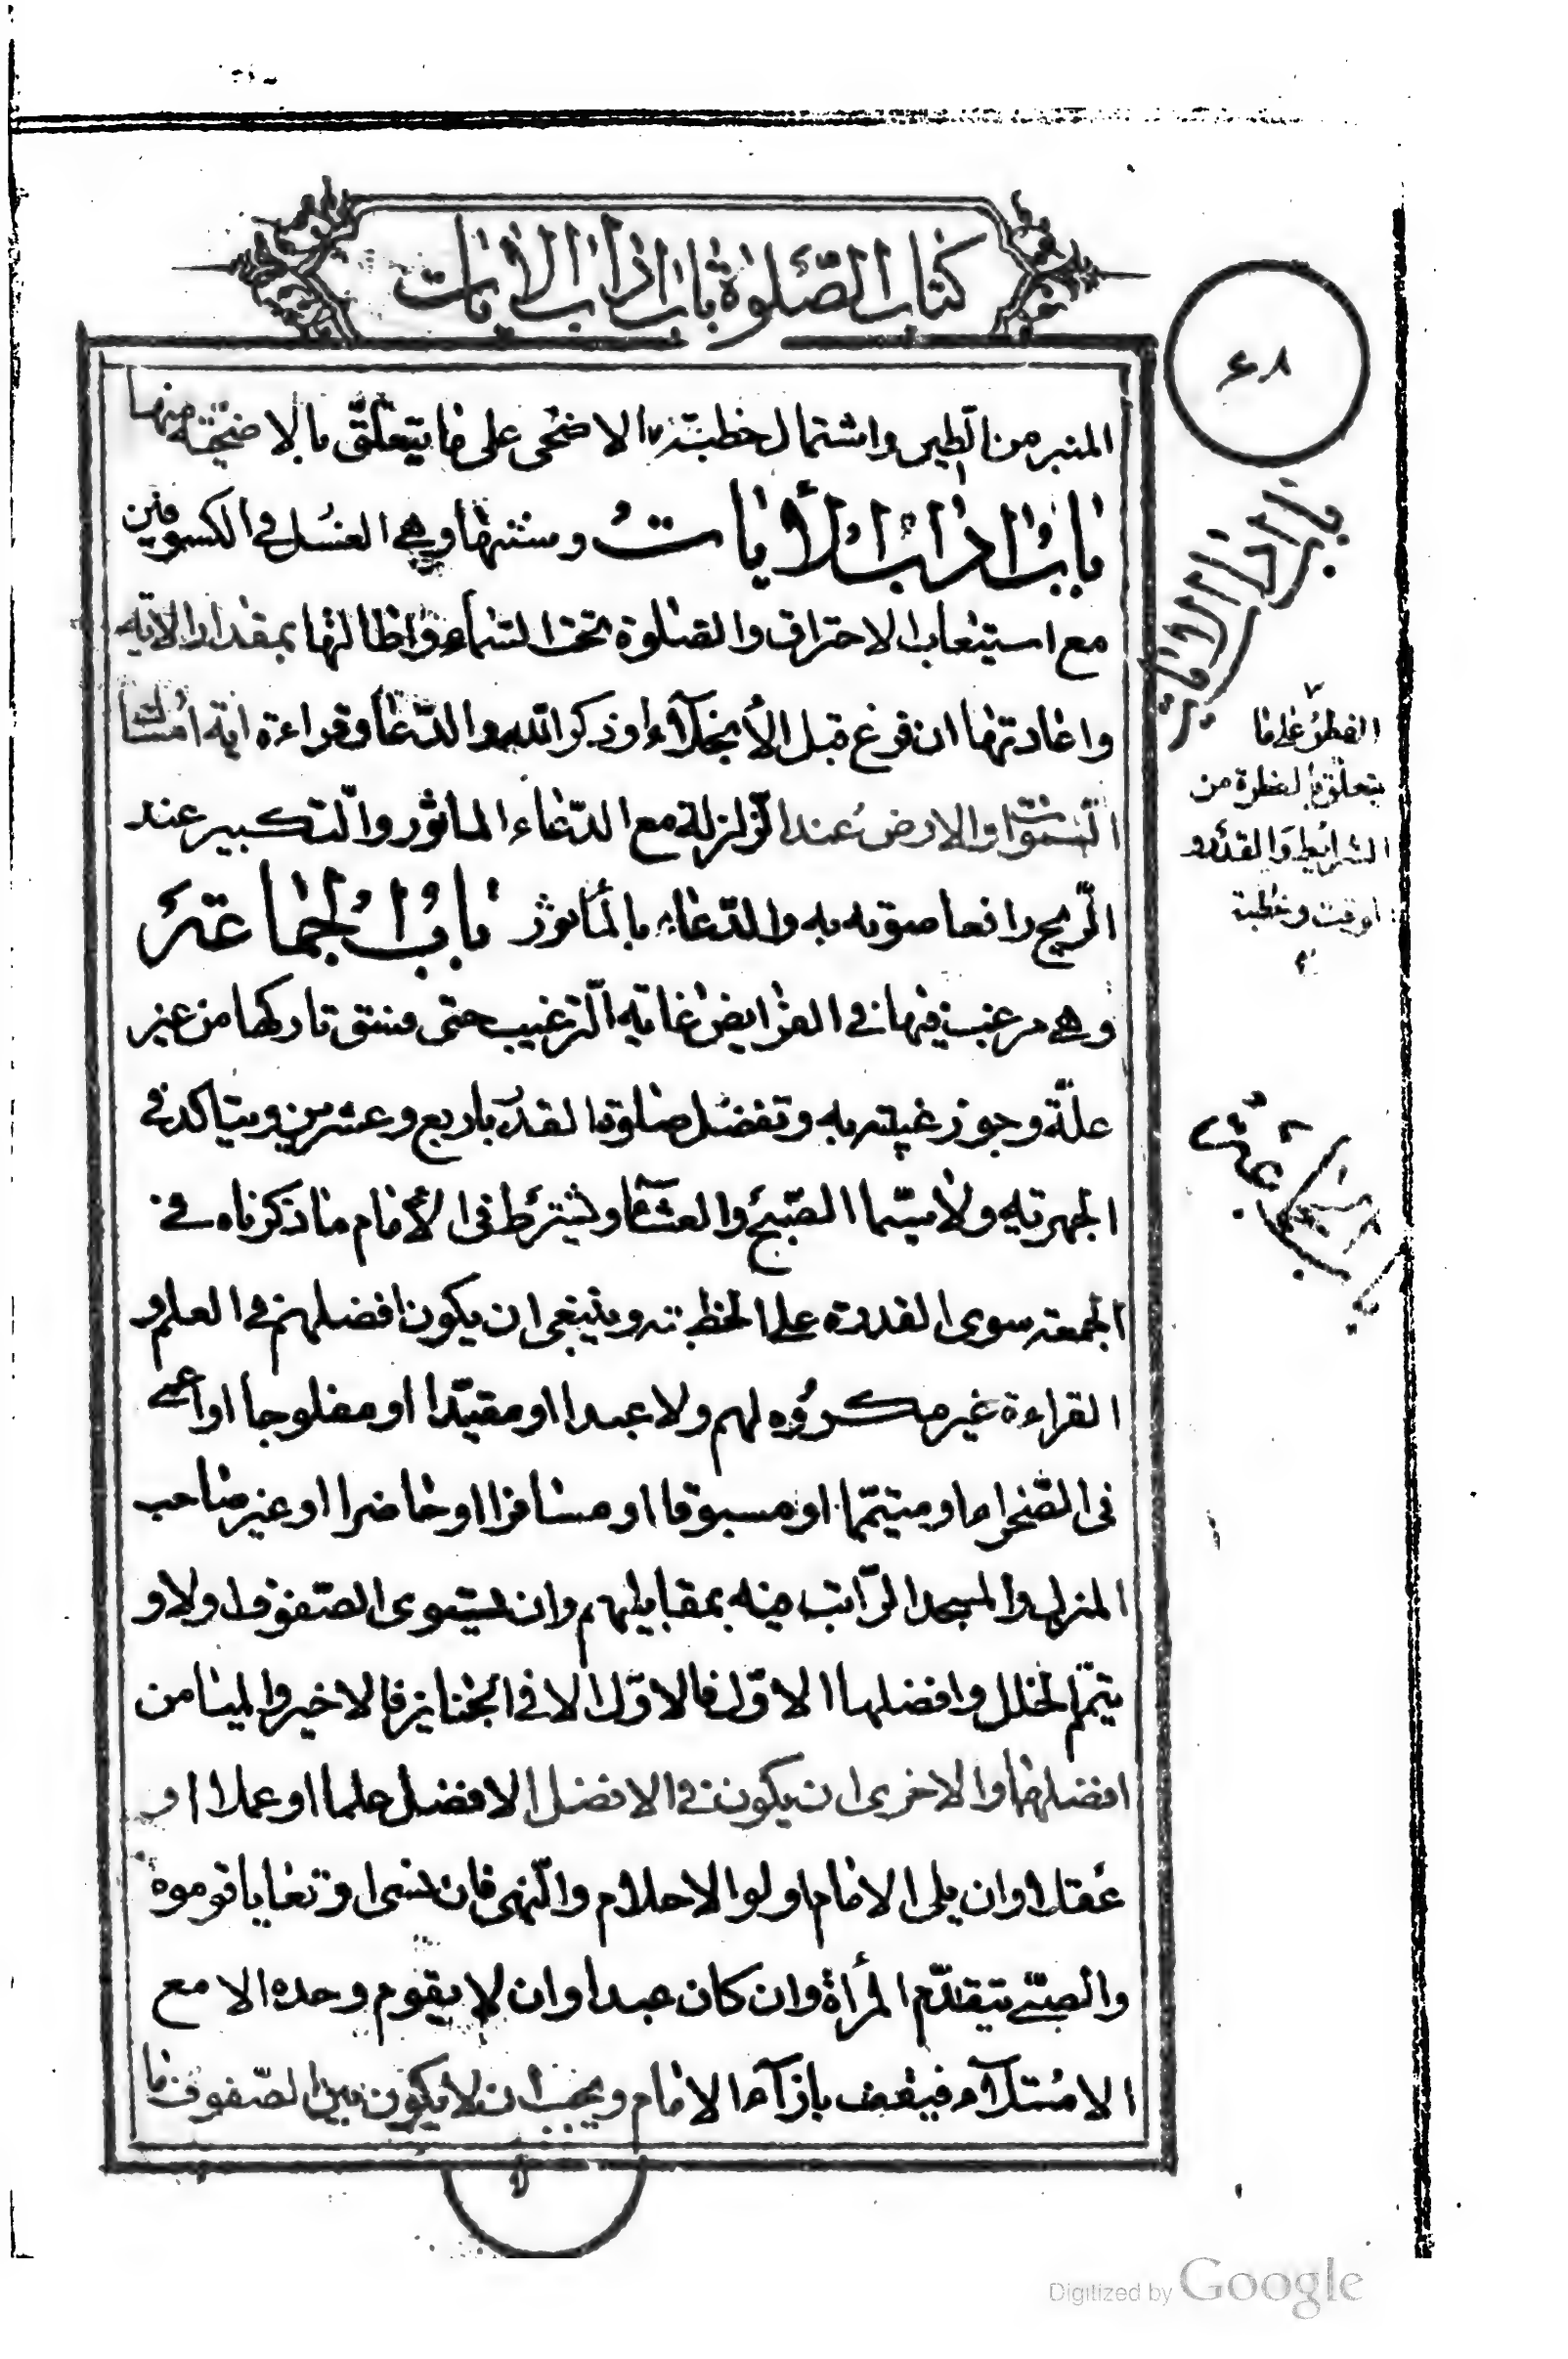 كتاب الصّلوة باب اداب الايات
٤٨
المنبر من الطين واشتمال خطبته الاضحى على ما يتعلّق بالاضحيّة منها
باب اداب الأيات وسننها وهى الغسل فى الكسوفين
مع استيعاب الاحتراق والصّلوة تحت السّماء واطالتها بمقدار الاية
واعادتها ان فرغ قبل الأنجلاء او ذكر الله والدّعاء وقراءة اية امساك
السّموات والارض عند الزلزلة مع الدّعاء الماثور والتكبير عند
الرّيح رافعا صوته به والدّعاء بالمأثور باب الجماعة
وهى مرغب فيها فى الفرايض غاية التّرغيب حتى فسق تاركها من غير
علّة وجوز غيبته به وتفضل صلوة الفذّ باربع وعشرين ويتاكد فى
الجهرية ولا سيّما الصّبح والعشاء ويشترط فى الأمام ما ذكرناه فى
الجمعة سوى القدرة على الخطبة وينبغى ان يكون افضلهم فى العلم و
القراءة غير مكروه لهم ولا عبدا او مقيّدا او مفلوجا او اعمى
فى الصّحرا او متيمّما او مسبوقا او مسافرا او حاضرا او غير صاحب
المنزل والمسجد الرّاتب فيه بمقابليهم وان يستوى الصّفوف اولا و
يتمّ الخلل وافضلها الاوّل فالاوّل الا فى الجنايز فالاخير والميامن
افضلها والاحرى ان يكون فى الافضل الافضل علما او عملا او
عقلا وان يلى الامام اولوا الاحلام والنّهى فان نسى او تعايا قوموه
والصبّى يتقدّم المرأة وان كان عبدا وان لا يقوم وحده الا مع
الامتلاء فيقف بازاء الامام ويجب ان لا يكون بين الصّفوف ما
باب اداب الايات
الفطر على ما
يتعلّق بالفطرة من
الشرايط والقدر و
الوقت وخطبة
باب الجماعة
Digitized by Google